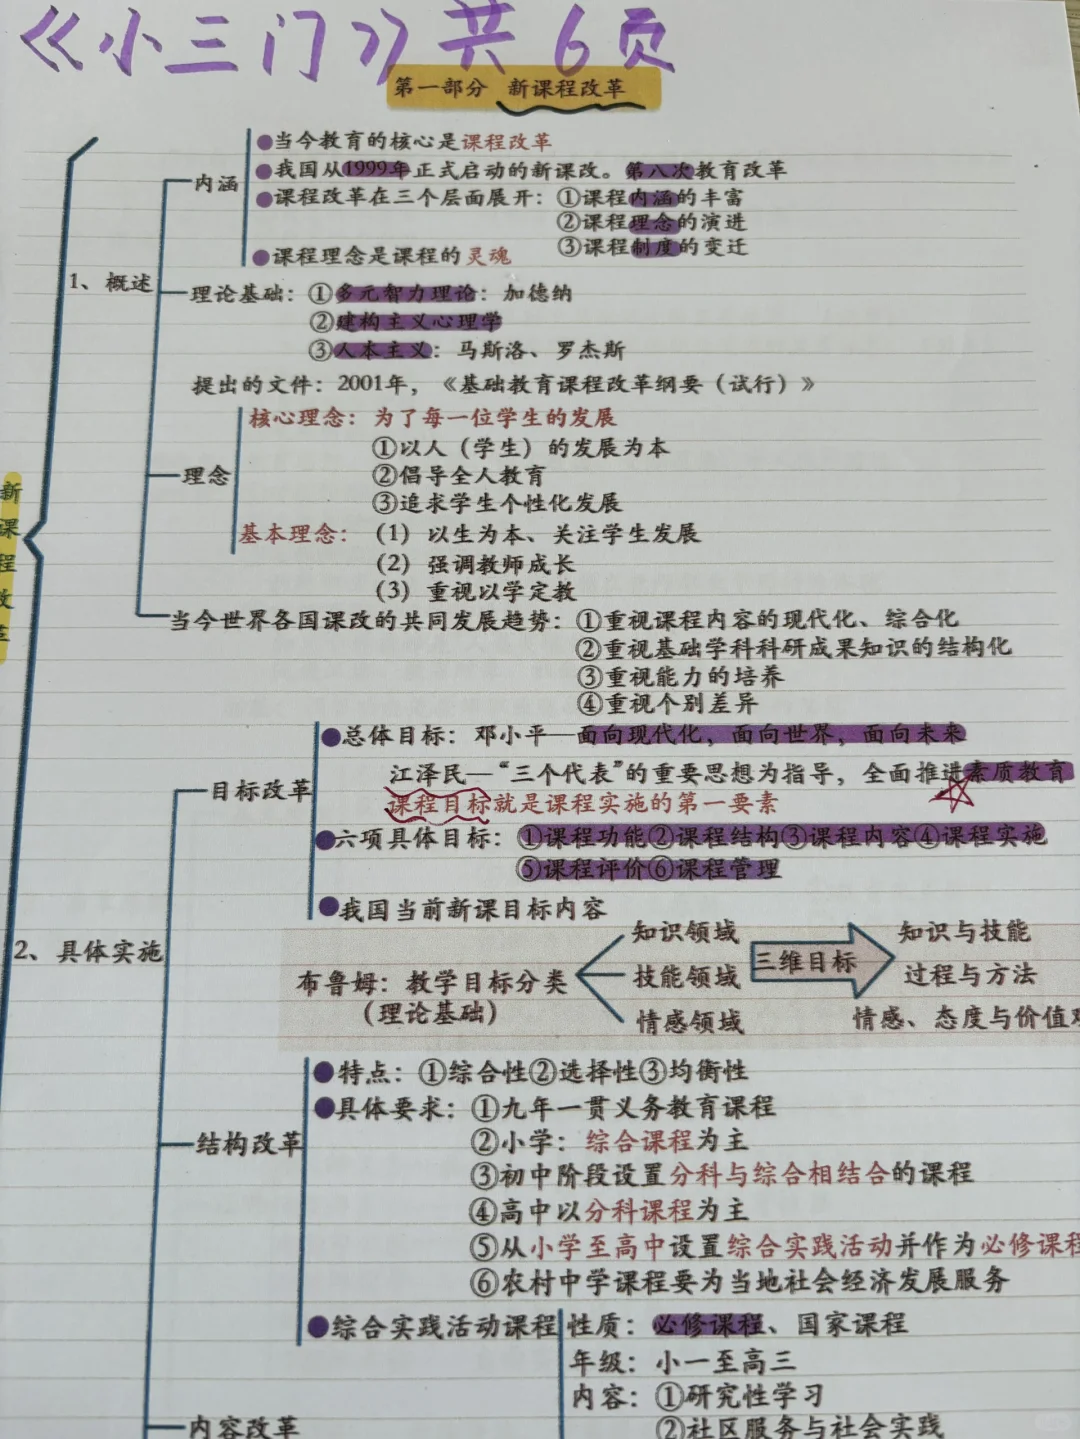 《小三门》共6页
第一部分 新课程改革
●当今教育的核心是课程改革
●我国从1999年正式启动的新课改。第八次教育改革
内涵
●课程改革在三个层面展开：①课程内涵的丰富
②课程理念的演进
③课程制度的变迁
●课程理念是课程的灵魂
1、概述
理论基础：①多元智力理论：加德纳
②建构主义心理学
③人本主义：马斯洛、罗杰斯
提出的文件：2001年，《基础教育课程改革纲要（试行）》
核心理念：为了每一位学生的发展
①以人（学生）的发展为本
理念
②倡导全人教育
③追求学生个性化发展
新课程改革
基本理念：（1）以生为本、关注学生发展
（2）强调教师成长
（3）重视以学定教
当今世界各国课改的共同发展趋势：①重视课程内容的现代化、综合化
②重视基础学科科研成果知识的结构化
③重视能力的培养
④重视个别差异
●总体目标：邓小平—面向现代化，面向世界，面向未来
江泽民—“三个代表”的重要思想为指导，全面推进素质教育
目标改革
课程目标就是课程实施的第一要素
●六项具体目标：①课程功能②课程结构③课程内容④课程实施
⑤课程评价⑥课程管理
●我国当前新课目标内容
2、具体实施
知识领域
知识与技能
布鲁姆：教学目标分类
技能领域
三维目标
过程与方法
（理论基础）
情感领域
情感、态度与价值观
●特点：①综合性②选择性③均衡性
●具体要求：①九年一贯义务教育课程
结构改革
②小学：综合课程为主
③初中阶段设置分科与综合相结合的课程
④高中以分科课程为主
⑤从小学至高中设置综合实践活动并作为必修课程
⑥农村中学课程要为当地社会经济发展服务
●综合实践活动课程
性质：必修课程、国家课程
年级：小一至高三
内容：①研究性学习
②社区服务与社会实践
内容改革